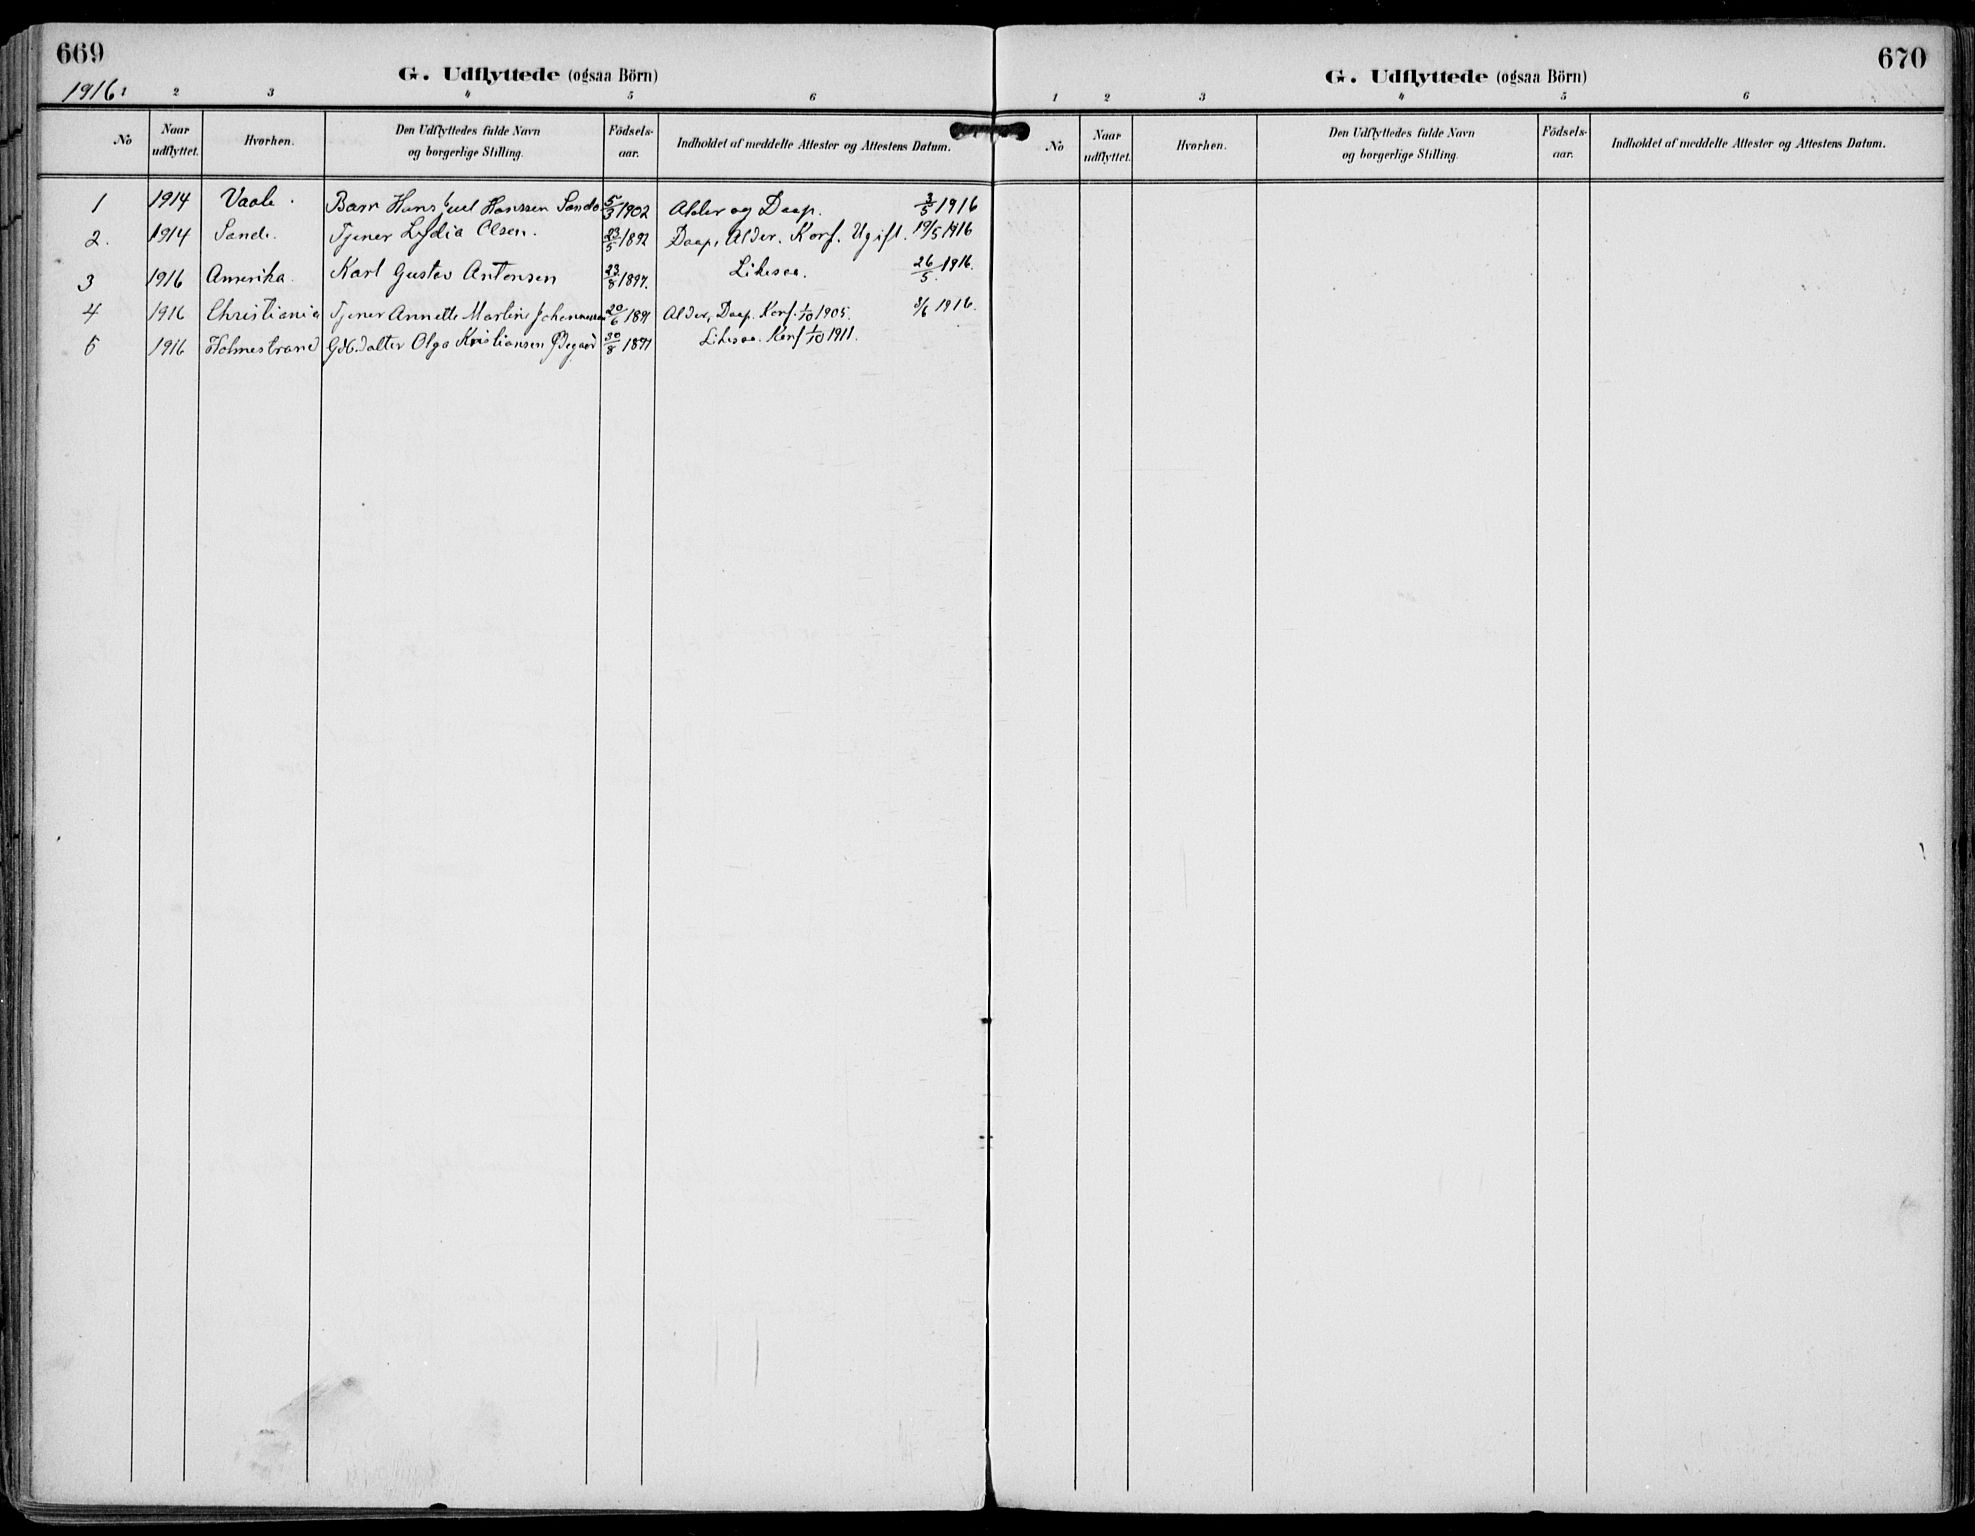 669
G. Udflyttede (ogsaa Börn)
1916
1 2 3 4 5 6
No
Naar udflyttet.
Hvorhen.
Den Udflyttedes fulde Navn og borgerlige Stilling.
Födsels-aar.
Indholdet af meddelte Attester og Attestens Datum.
1 1914 Vaale. Barn Hans Hanssen Sande 5/3 1902 Alder og Daap. 3/5 1916
2. 1914 Sande. Tjener Lydia Olsen. 23/5 1892 Daap, Alder, Konf. Ugift. 19/5 1916
3 1916 Amerika. Karl Gustav Antonsen 23/8 1897. Likesaa. 26/5 1916.
4 1916 Christiania Tjener Annette Martine Johannessen 20/6 1891 Alder, Daap. Konf. 1/10 1905. 3/6 1916.
5 1916 Holmestrand Gdb. datter Olga Kristiansen 30/8 1897 Likesaa. Konf 1/10 1911.
670
G. Udflyttede (ogsaa Börn)
1 2 3 4 5 6
No
Naar udflyttet.
Hvorhen.
Den Udflyttedes fulde Navn og borgerlige Stilling.
Födsels-aar.
Indholdet af meddelte Attester og Attestens Datum.